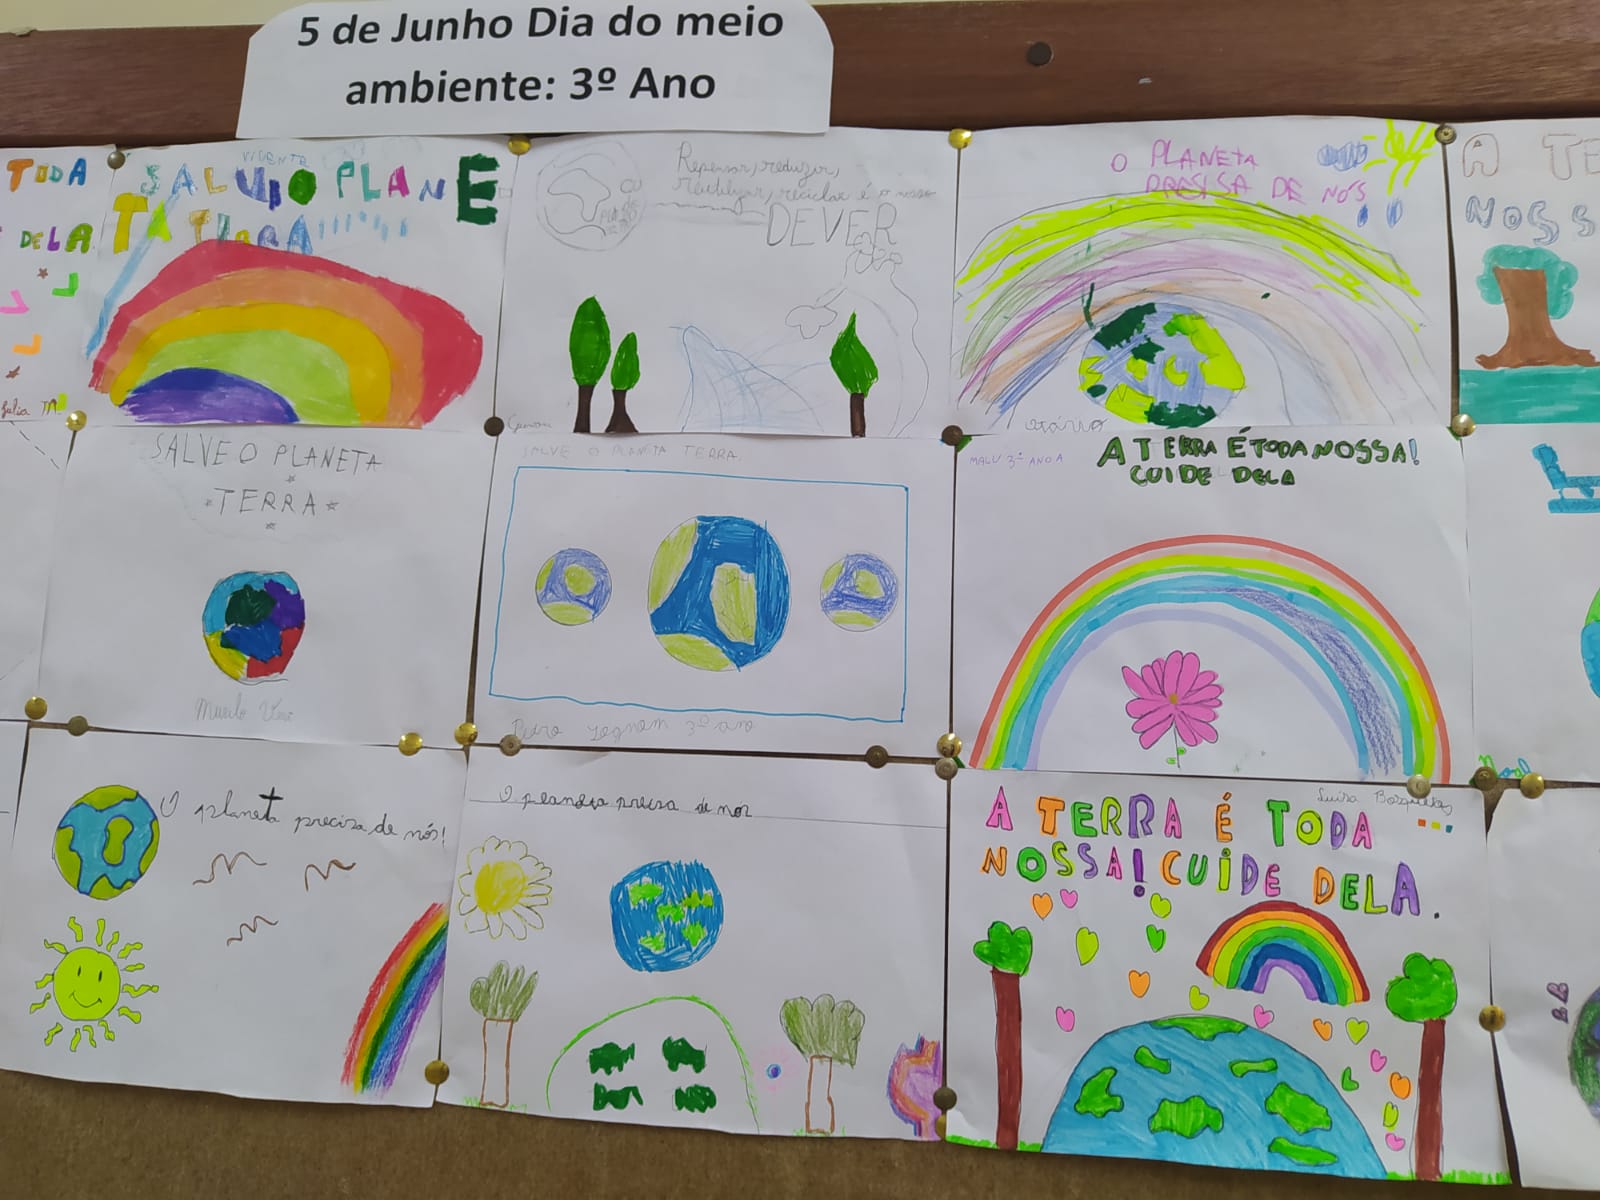 5 de Junho Dia do meio
ambiente: 3º Ano
TODA
DELA
Julia M.
VICENTE
SALVIO PLANE
TA TERRA
Repensar, reduzir,
reutilizar, reciclar é o nosso
DEVER
O PLANETA
PRESISA DE NÓS
A TE
NOSS
SALVE O PLANETA
TERRA
Murilo
SALVE O PLANETA TERRA
Pedro 3º ano
MALU 3º ANO A
A TERRA É TODA NOSSA!
CUIDE DELA
O planeta precisa de nós!
O planeta precisa de nos
Luisa
A TERRA É TODA
NOSSA! CUIDE DELA.